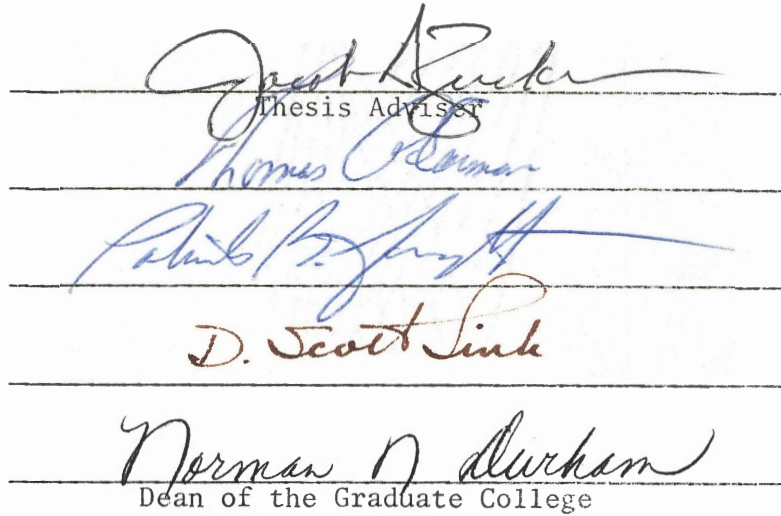 Jacob
Thesis Adviser
Thomas
B.
D. Scott Sink
Norman N Durham
Dean of the Graduate College